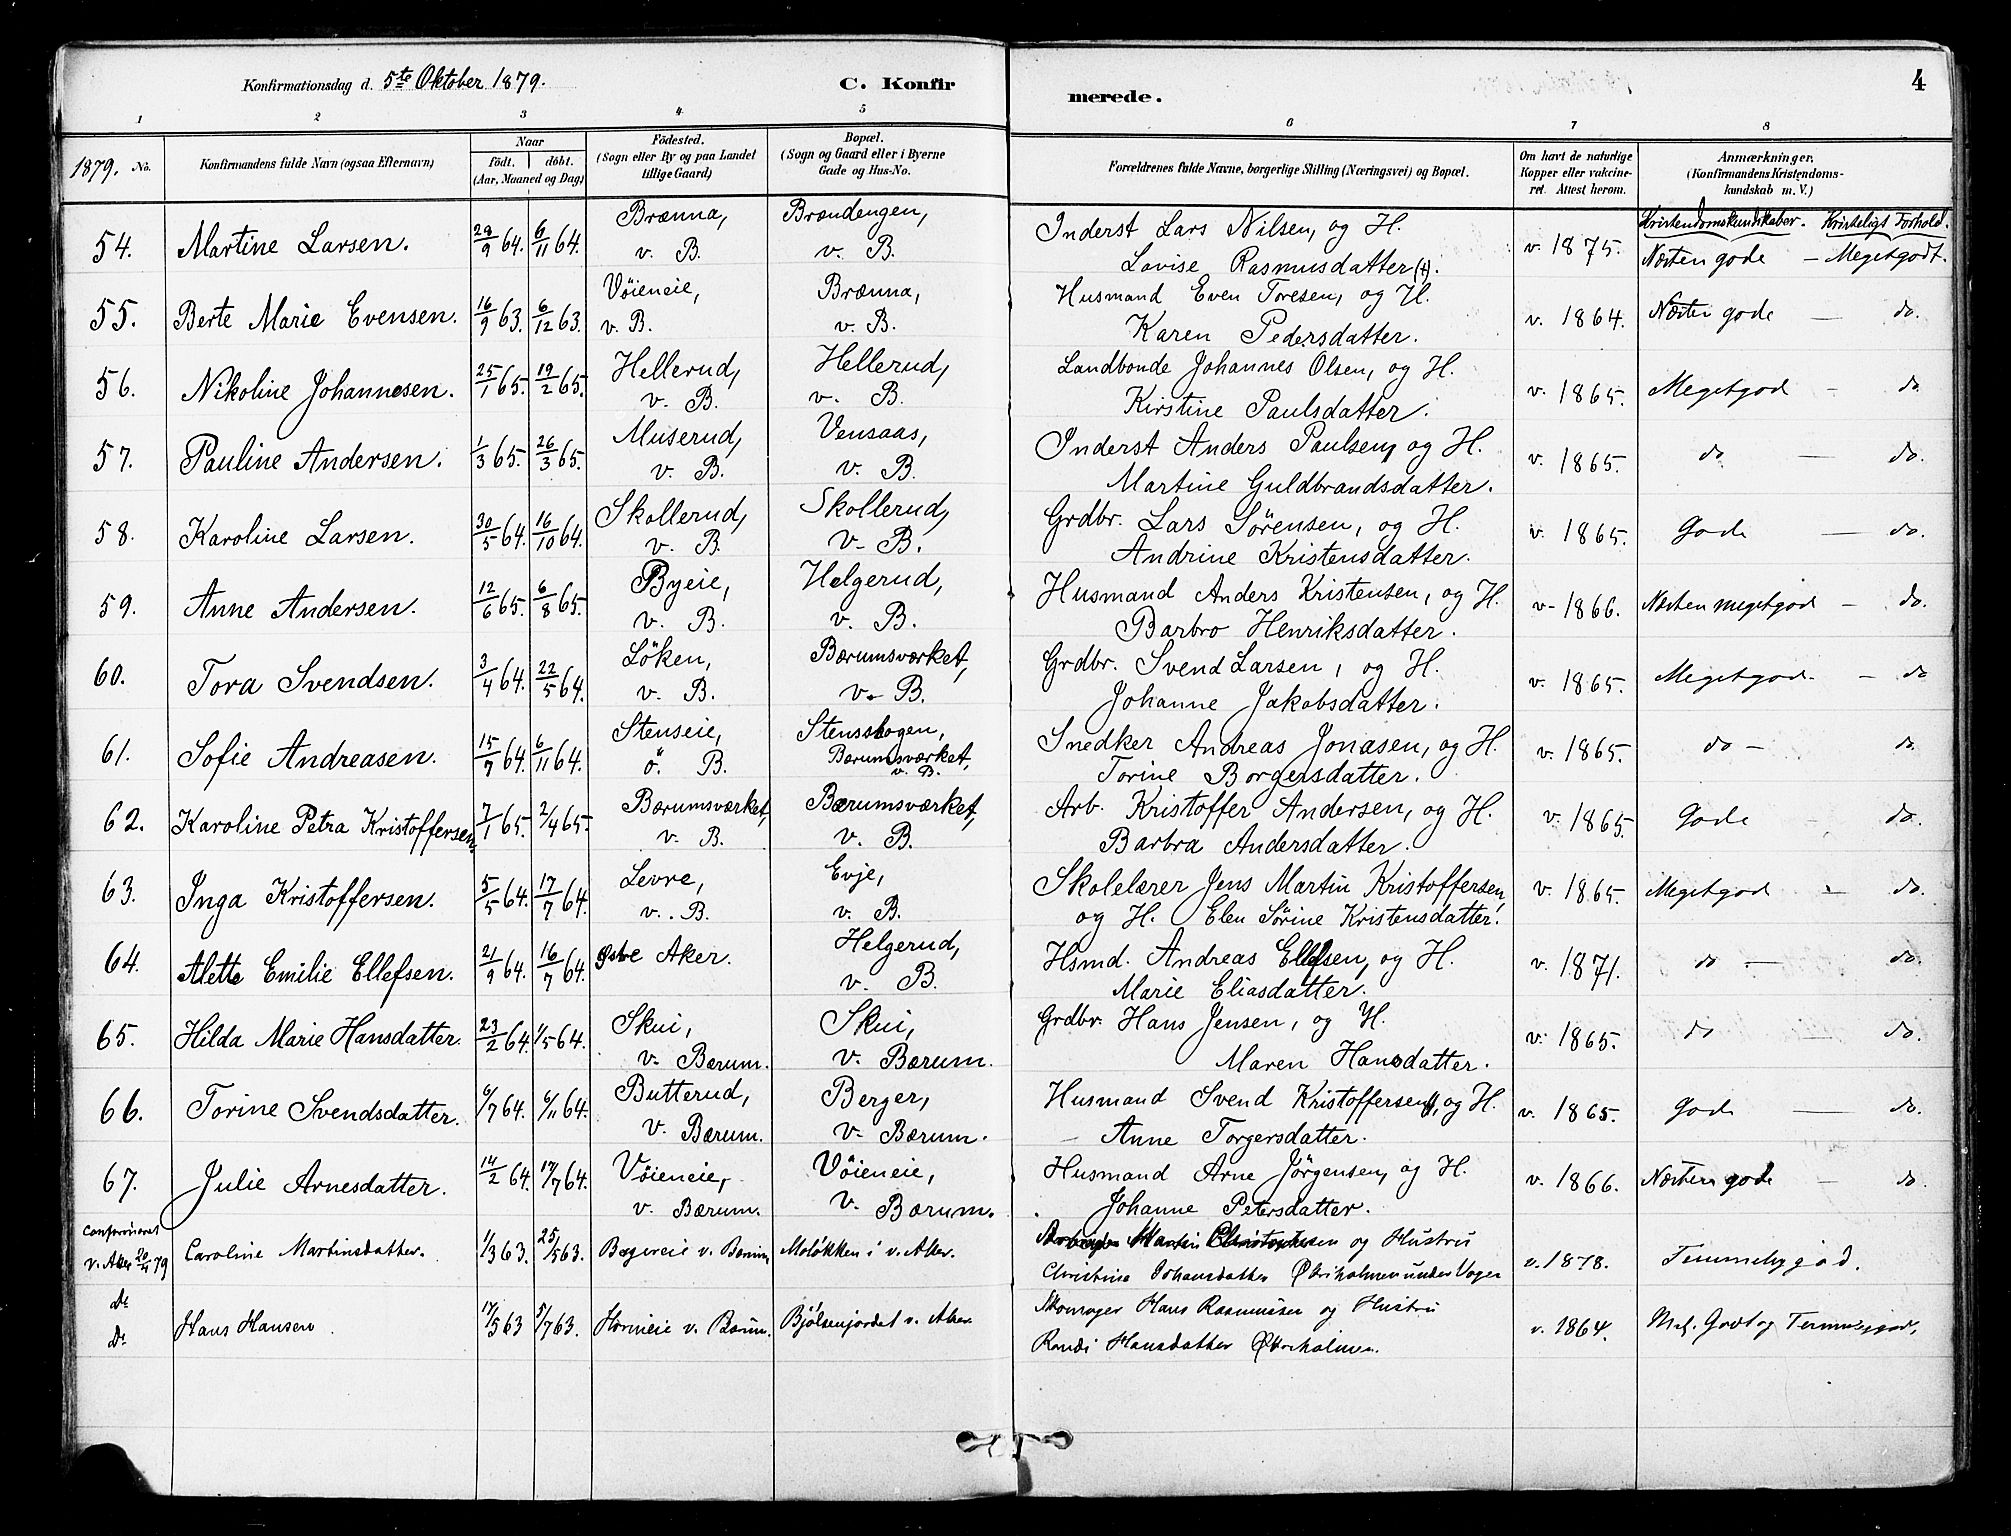 Konfirmationsdag d. 5te Oktober 1879.
C. Konfirmerede.
4
1 2 3 4 5 6 7 8
1879. No.
Konfirmandens fulde Navn (ogsaa Efternavn)
Naar
födt. döbt.
(Aar, Maaned og Dag)
Födested.
(Sogn eller By og paa Landet
tillige Gaard)
Bopæl.
(Sogn og Gaard eller i Byerne
Gade og Hus-No.
Forældrenes fulde Navne, borgerlige Stilling (Næringsvei) og Bopæl.
Om havt de naturlige
Kopper eller vakcine-
ret. Attest herom.
Anmærkninger.
(Konfirmandens Kristendoms-
kundskab m. V.)
Kristendomskundskaber. Kristeligt Forhold.
54. Martine Larsen. 29/9 64. 6/11 64. Brænna, v. B. Brændengen, v. B. Inderst Lars Nilsen, og H. Lovise Rasmusdatter (+). v. 1875. Næsten gode – Megetgodt.
55. Berte Marie Evensen. 16/9 63. 6/12 63. Vöieneie, v. B. Brænna, v. B. Husmand Even Toresen, og H. Karen Pedersdatter. v. 1864. Næsten gode – do.
56. Nikoline Johannesen. 25/1 65. 19/2 65. Hellerud, v. B. Hellerud, v. B. Landbonde Johannes Olsen, og H. Kirstine Paulsdatter. v. 1865. Megetgod – do.
57. Pauline Andersen. 1/3 65. 26/3 65. Muserud, v. B. Vensaas, v. B. Inderst Anders Paulsen, og H. Martine Guldbrandsdatter. v. 1865. do – do.
58. Karoline Larsen. 30/5 64. 16/10 64. Skollerud, v. B. Skollerud, v. B. Grdbr. Lars Sörensen, og H. Andrine Kristensdatter. v. 1865. Gode – do.
59. Anne Andersen. 12/6 65. 6/8 65. Byeie, v. B. Helgerud, v. B. Husmand Anders Kristensen, og H. Barbro Henriksdatter. v. 1866. Næsten megetgod – do.
60. Tora Svendsen. 3/4 64. 22/5 64. Löken, v. B. Bærumsværket, v. B. Grdbr. Svend Larsen, og H. Johanne Jakobsdatter. v. 1865. Megetgod. – do
61. Sofie Andreasen. 15/7 64. 6/11 64. Stenseie, ö. B. Stensskogen, Bærumsværket, v. B. Snedker Andreas Jonasen, og H. Torine Borgersdatter. v. 1865. do – do.
62. Karoline Petra Kristoffersen. 7/1 65. 2/4 65. Bærumsværket, v. B. Bærumsværket, v. B. Arb. Kristoffer Andersen, og H. Barbra Andersdatter. v. 1865. Gode – do.
63. Inga Kristoffersen. 5/5 64. 17/7 64. Levre, v. B. Evje, v. B. Skolelærer Jens Martin Kristoffersen, og H. Elen Sörine Kristensdatter. v. 1865. Megetgod – do.
64. Alette Emilie Ellefsen. 21/9 64. 16/7 64. Østre Aker. Helgerud, v. B. Hsmd. Andreas Ellefsen, og H. Marie Eliasdatter. v. 1871. do – do.
65. Hilda Marie Hansdatter. 23/2 64. 1/5 64. Skui, v. Bærum. Skui, v. Bærum. Grdbr. Hans Jensen, og H. Maren Hansdatter. v. 1865. do – do.
66. Torine Svendsdatter. 6/7 64. 6/11 64. Butterud, v. Bærum. Berger, v. Bærum. Husmand Svend Kristoffersen, og H. Anne Torgersdatter. v. 1865. Gode – do.
67. Julie Arnesdatter. 14/2 64. 17/7 64. Vöieneie, v. Bærum. Vöieneie, v. Bærum. Husmand Arne Jörgensen, og H. Johanne Petersdatter. v. 1866. Næsten gode – do.
Confirmeret v. Aker 20/4 79 Caroline Martinsdatter. 1/3 63. 25/5 63. v. Bærum Moløkken i v. Aker. Martin og Hustru Christine Johansdatter v. 1878. Temmelig god.
do do Hans Hansen 17/5 63 5/7 63. v. Bærum. Bjølsenjordet v. Aker. Skomager Hans Rasmussen og Hustru Randi Hansdatter v. 1864. Mel. Godt og Temmelig god.